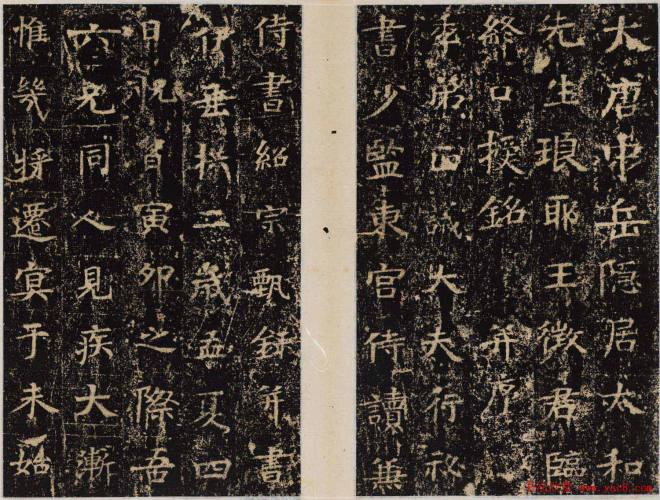 大唐中岳隱居太和
先生琅耶王徵君臨
終口授銘 并序
季弟正議大夫行祕
書少監東宮侍讀兼
侍書紹宗甄錄并書
伊垂拱二歲孟夏四
日寅卯之際吾
六兄同人見疾大漸
惟幾將遷冥于未始
www.yac8.com